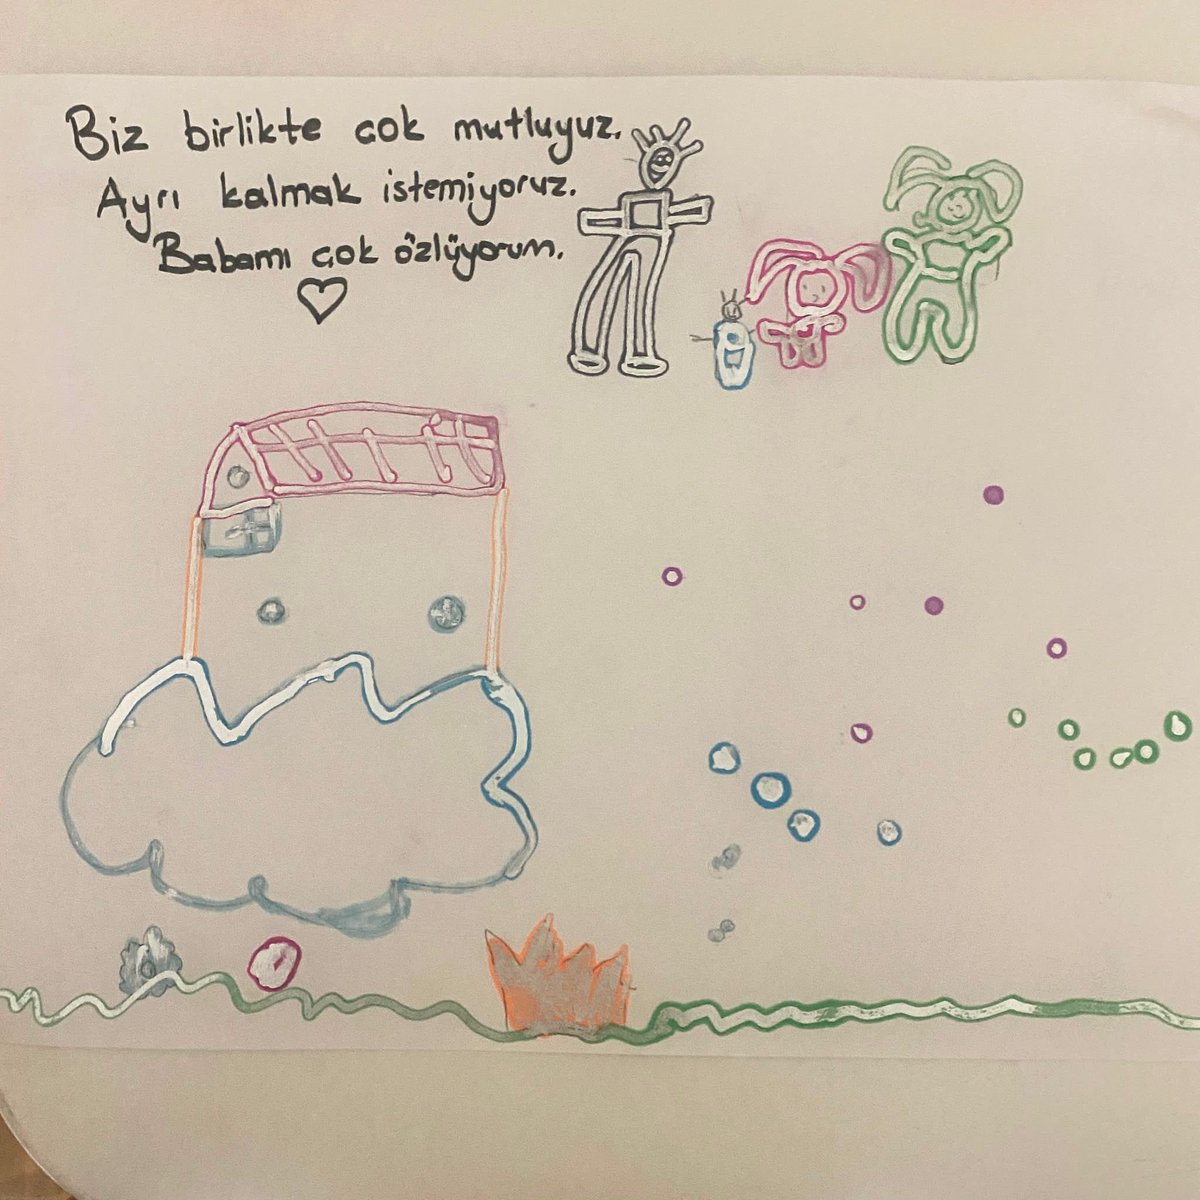 Biz birlikte çok mutluyuz.
Ayrı kalmak istemiyoruz.
Babamı çok özlüyorum.